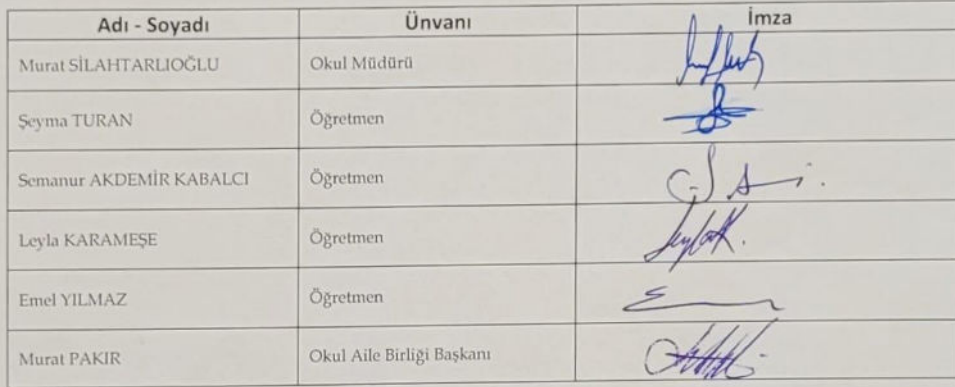 Adı - Soyadı Ünvanı İmza
Murat SİLAHTARLIOĞLU Okul Müdürü
Şeyma TURAN Öğretmen
Semanur AKDEMİR KABALCI Öğretmen
Leyla KARAMEŞE Öğretmen
Emel YILMAZ Öğretmen
Murat PAKIR Okul Aile Birliği Başkanı